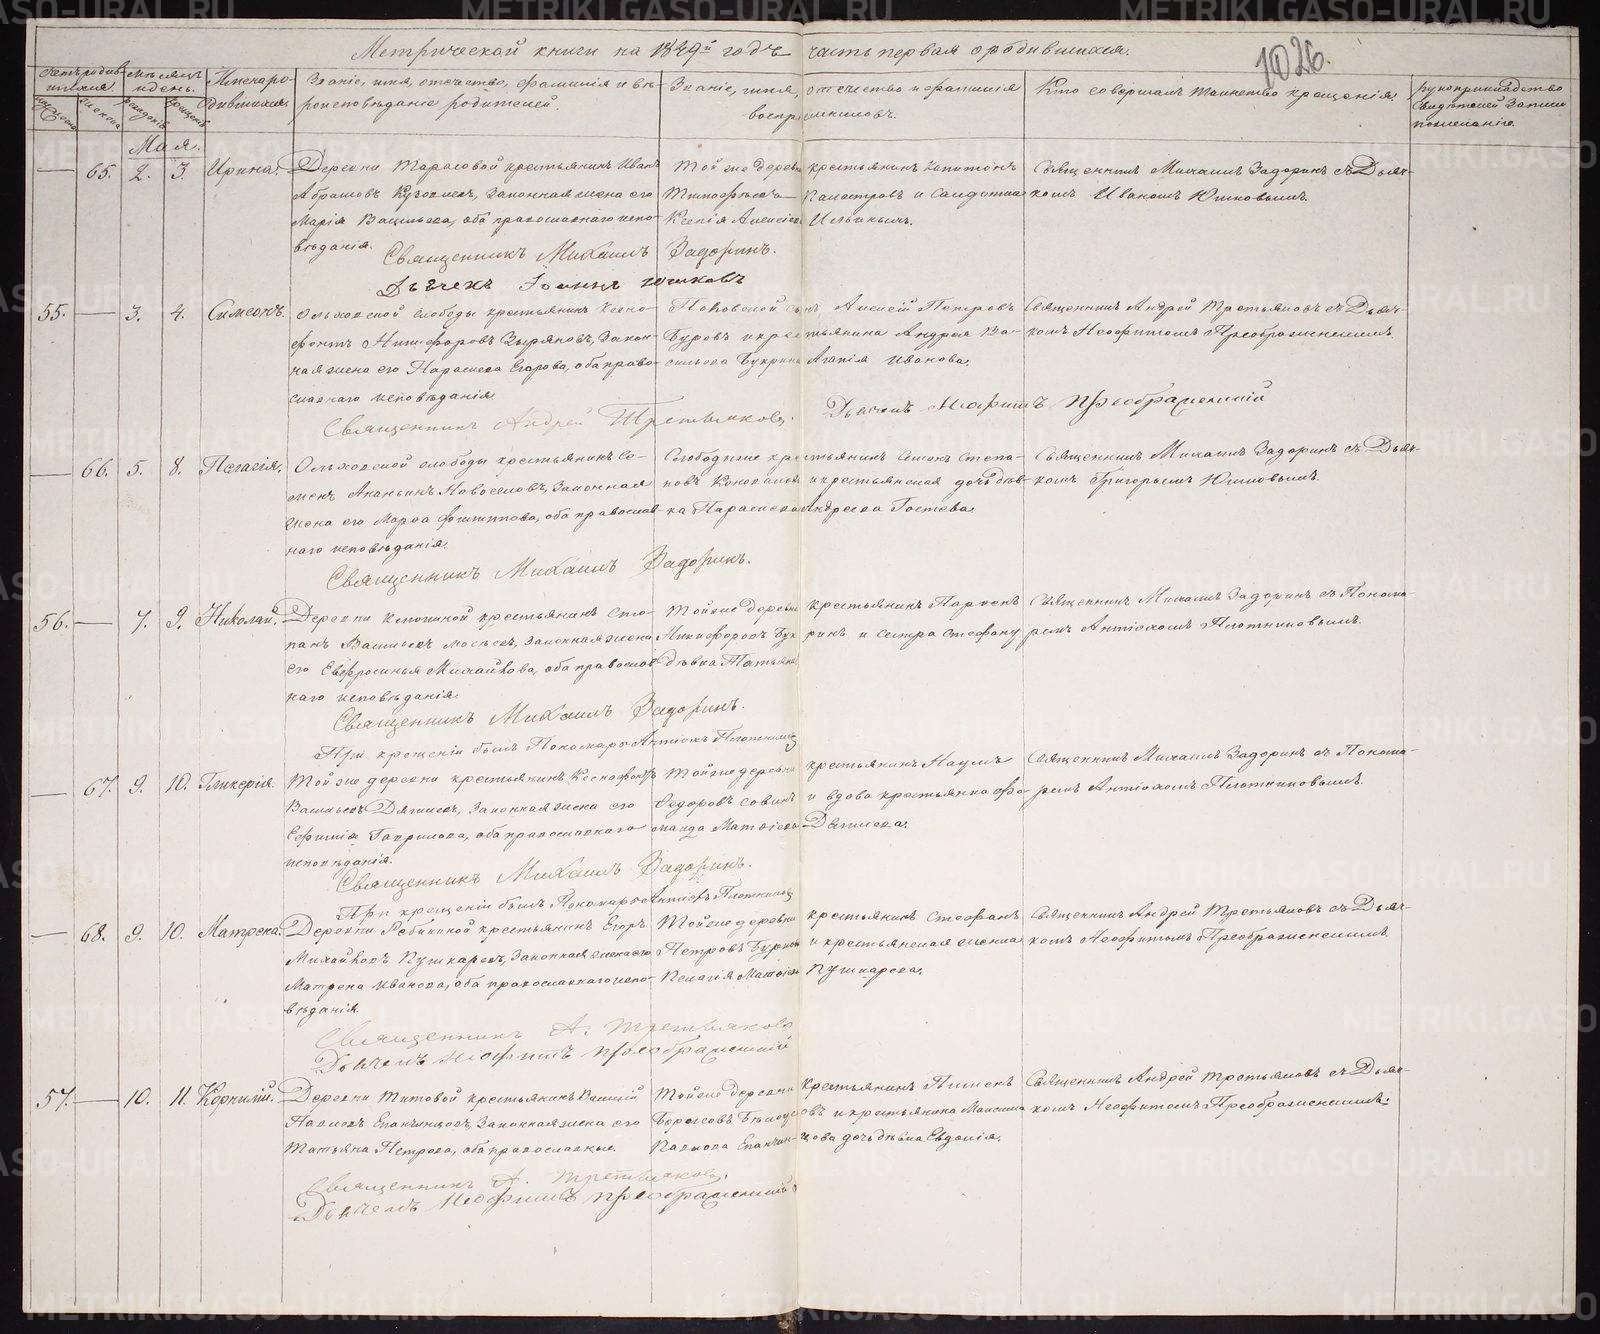 Метрической книги на 1849й годъ часть первая о родившихся.
1026.
Счетъ родившихся
Мѣсяцъ и день
Имена родившихся.
Званіе, имя, отчество, фамилія и вѣроисповѣданіе родителей.
Званіе, имя, отчество и фамилія воспріемниковъ.
Кто совершалъ таинство крещенія.
рукоприкладство свидетелей записи по желанію.
Мая.
65. 2. 3. Ирина.
Деревни Тарасовой крестьянинъ Иванъ
Законная жена его
Марія Васильева, оба православнаго испо-
вѣданія.
Той же деревни крестьянинъ Капитонъ
Ксенія Алексіева
Священникъ Михаилъ Задоринъ съ Дьяч-
комъ Иваномъ Юшковымъ.
Священникъ Михаилъ Задоринъ.
Дьячекъ Іоаннъ Юшковъ
55. 3. 4. Симеонъ.
Ольховской слободы крестьянинъ Ксено-
фонтъ Никифоровъ Зыряновъ, Закон-
ная жена его Параскева Егорова, оба право-
славнаго исповѣданія
Алексій Петровъ
Буровъ и крестьянина Андрея Ва-
сильева Букрина Агапія Иванова.
Священникъ Андрей Третьяковъ съ Дьяч-
комъ Неофитомъ Преображенскимъ.
Священникъ Андрей Третьяковъ.
Дьячекъ Неофитъ Преображенскій
66. 5. 8. Пелагія.
Ольховской слободы крестьянинъ Се-
менъ Ананьинъ Новоселовъ, Законная
жена его Марфа Филиппова, оба православ-
наго исповѣданія.
Слободы же крестьянинъ Семенъ Степа-
новъ Коновалов и крестьянская дочь дѣв-
ка Параскева Андреева Гостева.
Священникъ Михаилъ Задоринъ съ Дьяч-
комъ Григорьемъ Юшковымъ.
Священникъ Михаилъ Задоринъ.
56. 7. 9. Николай.
Деревни крестьянинъ Сте-
панъ Васильевъ законная жена
его Евфросинья Михайлова, оба православ
наго исповѣданія
Той же деревни крестьянинъ Парфенъ
Никифоровъ Букринъ и сестра Стефану
дѣвка Татьяна
Священникъ Михаилъ Задоринъ съ Понома-
ремъ Антіохомъ Плотниковымъ.
Священникъ Михаилъ Задоринъ.
При крещеніи былъ Пономарь Антіохъ Плотниковъ
67. 9. 10. Гликерія.
Той же деревни крестьянинъ Ксенофонтъ
Васильевъ Законная жена его
Гаврилова, оба православнаго
исповѣданія.
Той же деревни крестьянинъ Наумъ
Федоровъ Савинъ и вдова крестьянка
Матвіева
Священникъ Михаилъ Задоринъ съ Понома-
ремъ Антіохомъ Плотниковымъ.
Священникъ Михаилъ Задоринъ.
При крещеніи былъ Пономарь Антіохъ Плотниковъ
68. 9. 10. Матрена.
Деревни Рябининой крестьянинъ Егоръ
Михайловъ Пушкаревъ, Законная жена его
Матрена Иванова, оба православнаго испо-
вѣданія.
Той же деревни крестьянинъ Стефанъ
Петровъ и крестьянская женка
Пелагія Матвіева Пушкарева.
Священникъ Андрей Третьяковъ съ Дьяч-
комъ Неофитомъ Преображенскимъ.
Священникъ А. Третьяковъ
Дьячекъ Неофитъ Преображенскій
57. 10. 11. Корнилій.
Деревни Титовой крестьянинъ Василій
Павловъ Епанчинцовъ, Законная жена его
Татьяна Петрова, оба православные.
Той же деревни крестьянинъ Пименъ
Борисовъ и крестьянина Максима
Павлова Епанчинцова дочь дѣвка Евдокія.
Священникъ Андрей Третьяковъ съ Дьяч-
комъ Неофитомъ Преображенскимъ.
Священникъ А. Третьяковъ.
Дьячекъ Неофитъ Преображенскій
METRIKI.GASO-URAL.RU